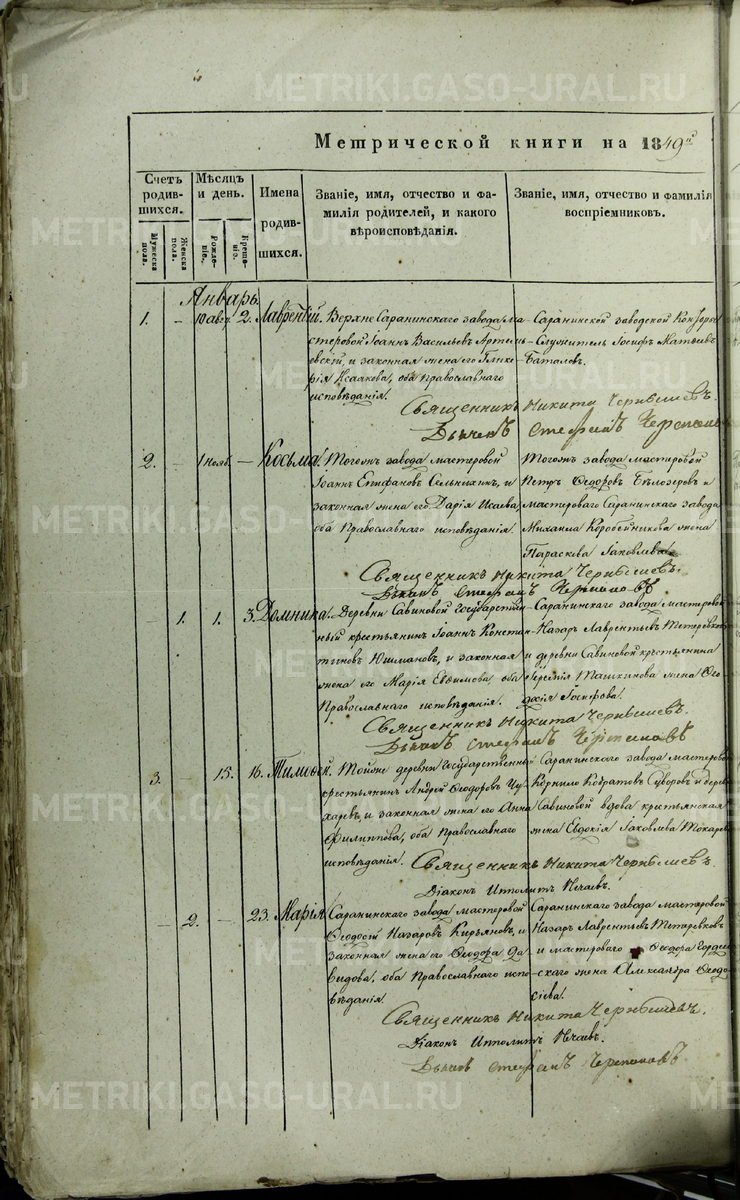 METRIKI.GASO-URAL.RU
Метрической книги на 1849й
Счетъ родившихся.
Мѣсяцъ и день.
Имена родившихся.
Званіе, имя, отчество и фамилія родителей, и какого вѣроисповѣданія.
Званіе, имя, отчество и фамилія воспріемниковъ.
Мужеска пола.
Женска пола.
Рожденіе.
Крещеніе.
Январь.
1. 2. Лаврентій.
Верхне Саранинскаго завода ма-
стеровой Іоаннъ Васильевъ
и законная жена его Глике-
рія Исаакова, оба Православнаго
исповѣданія.
Саранинской заводской Конторы
Служитель Іосифъ Матѳеевъ
Баталовъ.
Священникъ Никита Чернышевъ.
Дьячекъ Стефанъ Черепановъ
2. 1 Нояб. Косьма.
Тогожъ завода мастеровой
Іоаннъ Епифановъ и
законная жена его Дарія Исаева,
оба Православнаго исповѣданія.
Тогожъ завода мастеровой
Петръ Ѳедоровъ Бѣлозеровъ и
мастероваго Саранинскаго завода
Михаила Коробейникова жена
Параскева Іаковлева.
Священникъ Никита Чернышевъ.
Дьячекъ Стефанъ Черепановъ
1. 1. 3. Домника.
Деревни Савиновой Государствен-
ный крестьянинъ Іоаннъ Констан-
тиновъ Юшмановъ, и законная
жена его Марія Евфимова оба
Православнаго исповѣданія.
Саранинскаго завода мастеровой
Назаръ Лаврентьевъ Тетеревковъ
и деревни Савиновой крестьянина
Іереміи Ташкинова жена Ѳео-
досія Іосифова.
Священникъ Никита Чернышевъ.
Дьячекъ Стефанъ Черепановъ
3. 15. 16. Тимоѳей.
Тойже деревни Государственный
крестьянинъ Андрей Ѳеодоровъ
и законная жена его Анна
Филиппова, оба Православнаго
исповѣданія.
Саранинскаго завода мастеровой
Корнило Суворовъ и дерев
Савиновой вдова крестьянская
жена Евдокія Іаковлева Токарева
Священникъ Никита Чернышевъ.
Діаконъ Ипполитъ Нечаевъ.
2. 23. Марія.
Саранинскаго завода мастеровой
Ѳеодосій Назаровъ Кирьяновъ, и
законная жена его Ѳеодора Да-
видова, оба Православнаго испо-
вѣданія.
Саранинскаго завода мастеровой
Назаръ Лаврентьевъ Тетеревковъ
и мастероваго Ѳеодора
жена Александра Ѳеодо-
сіева.
Священникъ Никита Чернышевъ.
Діаконъ Ипполитъ Нечаевъ.
Дьячекъ Стефанъ Черепановъ